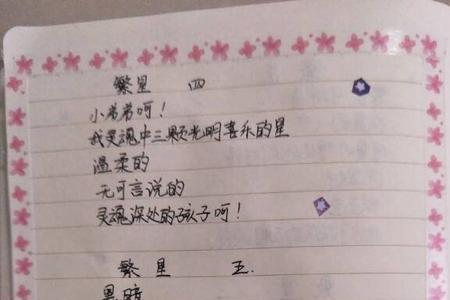 繁星 四
小弟弟呵！
我灵魂中三颗光明喜乐的星
温柔的
无可言说的
灵魂深处的孩子呵！
繁星 五.
黑暗